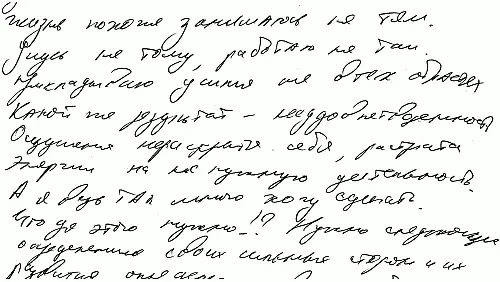 жизнь похоже занимаюсь не тем.
Учусь не тому, работаю не там.
Прикладываю усилия не в тех областях
Какой же результат - неудовлетворенность
Ощущение нераскрытия себя, растрата
Энергии на ненужную деятельность.
А я ведь так много хочу сделать.
Что для этого нужно_!? Нужно следующее
определение своих сильных сторон и их
развития